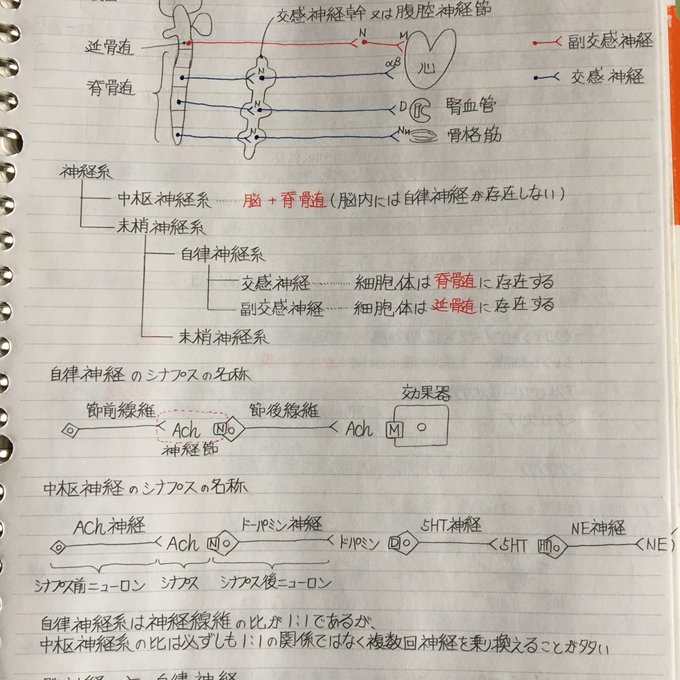 交感神経幹 又は腹腔神経節
延骨直
脊骨直
N
M
心
αβ
N
N
D
腎血管
N
NM
骨格筋
副交感神経
交感神経
神経系
中枢神経系……脳+脊骨直(脳内には自律神経が存在しない)
末梢神経系
自律神経系
交感神経………細胞体は脊骨直に存在する
副交感神経………細胞体は延骨直に存在する
末梢神経系
自律神経のシナプスの名称
節前線維 Ach N 節後線維 Ach M 効果器
神経節
中枢神経のシナプスの名称
ACh神経 ドーパミン神経 5HT神経 NE神経
ACh N ドパミン D 5HT HT NE
シナプス前ニューロン シナプス シナプス後ニューロン
自律神経系は神経線維の比が1:1であるが、
中枢神経系の比は必ずしも1:1の関係ではなく複数回神経を乗り換えることが多い